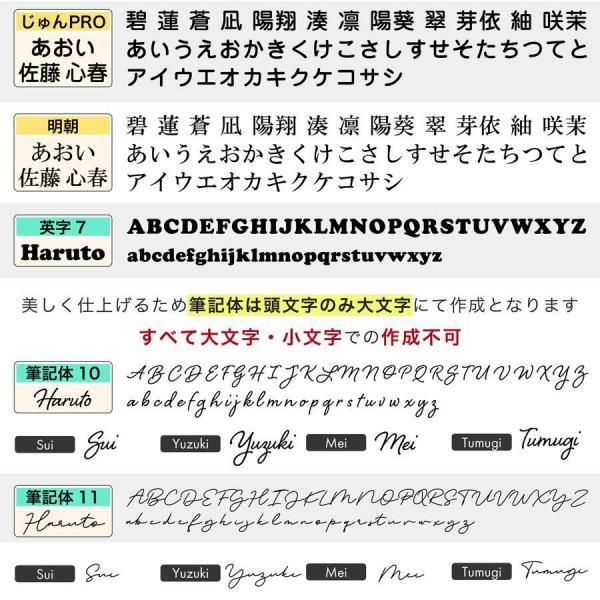 じゅんPRO
あおい
佐藤 心春
碧 蓮 蒼 凪 陽翔 湊 凛 陽葵 翠 芽依 紬 咲茉
あいうえおかきくけこさしすせそたちつてと
アイウエオカキクケコサシ
明朝
あおい
佐藤 心春
碧 蓮 蒼 凪 陽翔 湊 凛 陽葵 翠 芽依 紬 咲茉
あいうえおかきくけこさしすせそたちつてと
アイウエオカキクケコサシ
英字7
Haruto
ABCDEFGHIJKLMNOPQRSTUVWXYZ
abcdefghijklmnopqrstuvwxyz
美しく仕上げるため筆記体は頭文字のみ大文字にて作成となります
すべて大文字・小文字での作成不可
筆記体10
Haruto
ABCDEFGHIJKLMNOPQRSTUVWXYZ
abcdefghijklmnopqrstuvwxyz
Sui Sui Yuzuki Yuzuki Mei Mei Tumugi Tumugi
筆記体11
Haruto
ABCDEFGHIJKLMNOPQRSTUVWXYZ
abcdefghijklmnopqrstuvwxyz
Sui Sui Yuzuki Yuzuki Mei Mei Tumugi Tumugi